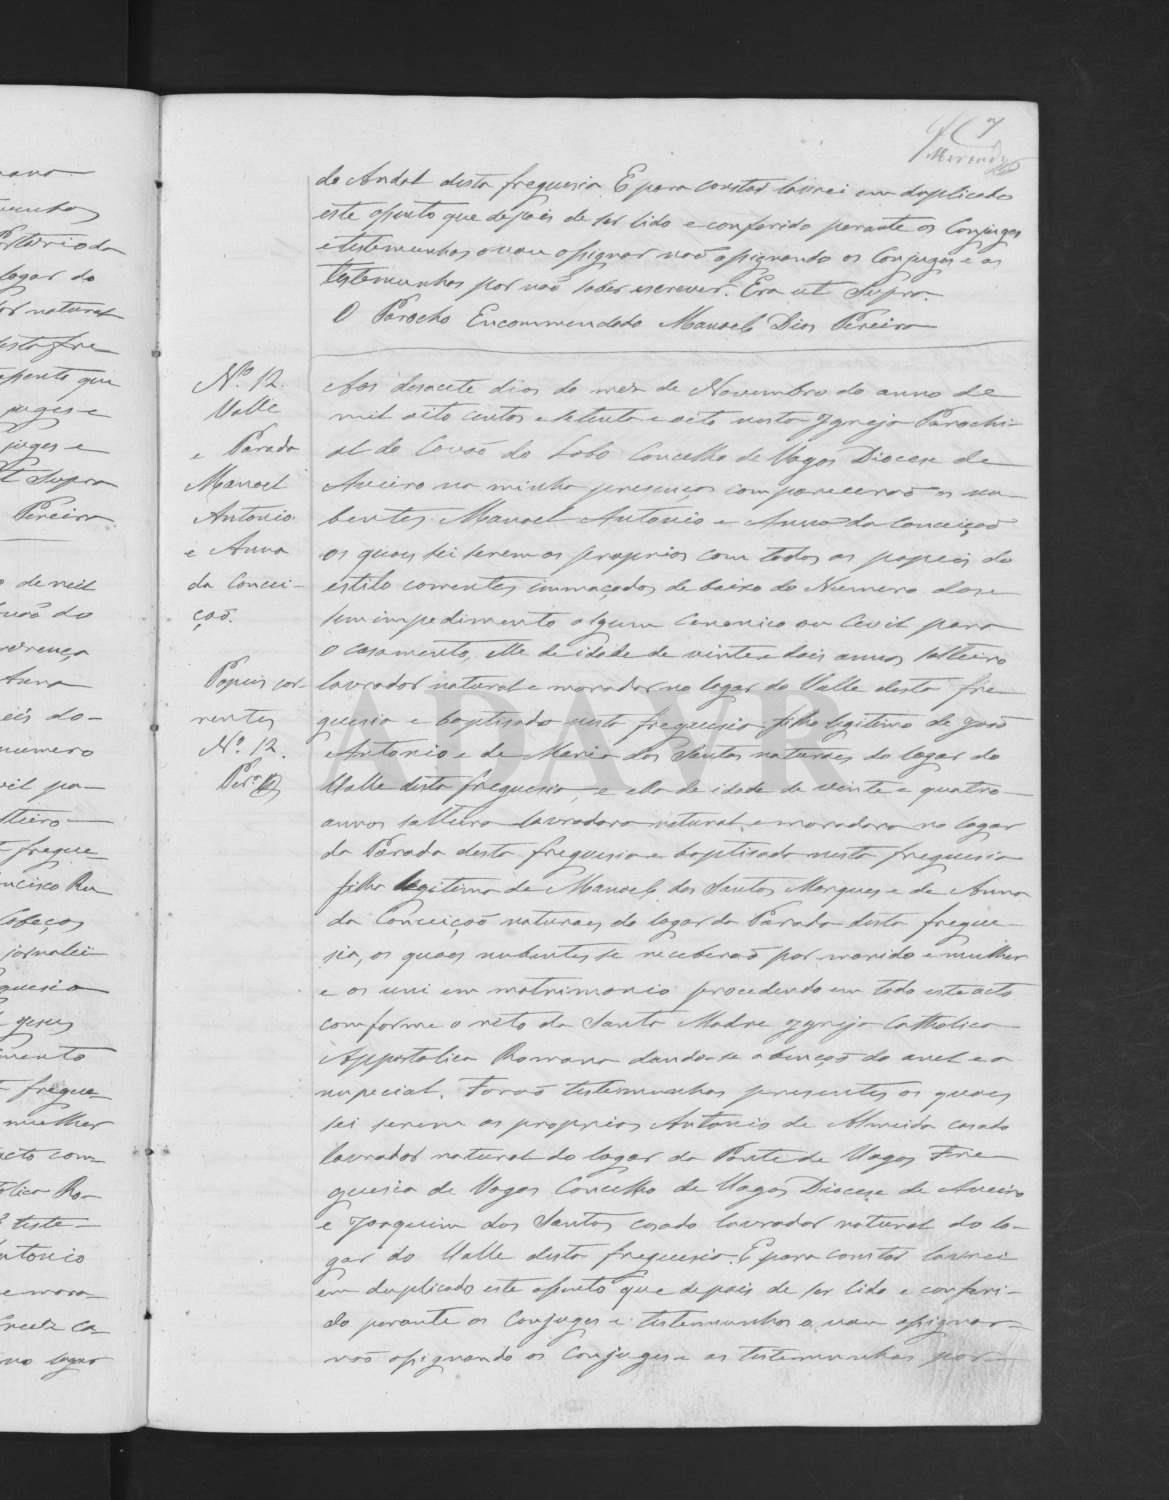 7
do Andal desta freguesia E para constar lavrei em duplicado
este assento que depois de ser lido e conferido perante os Conjuges
e testemunhas o vou assignar não assignando os Conjuges e as
testemunhas por não saber escrever. Era ut Supra.
O Parocho Encommendado Manoel Dias Pereira
Nº 12.
Valle
e Parada
Manoel
Antonio
e Anna
da Concei-
ção.
Papeis cor-
rentes
Nº 12.
Aos desacete dias do mez de Novembro do anno de
mil oito centos e setenta e oito nesta Igreja Parochi-
al do Covão do Lobo Concelho de Vagos Diocese de
Aveiro na minha presença compareceraõ os nu-
bentes Manoel Antonio e Anna da Conceiçaõ
os quaes sei serem os proprios com todos os papeis do
estilo correntes immaçados de baixo do Numero dose
sem impedimento algum Canonico ou Civil para
o casamento, elle de idade de vinte e dois annos solteiro
lavrador natural e morador no logar do Valle desta fre
guesia e baptisado nesta freguesia filho legitimo de João
Antonio e de Maria dos Santos naturaes do logar do
Valle desta freguesia, e ella de idade de vinte e quatro
annos solteira lavradora natural e moradora no logar
da Parada desta freguesia e baptisada nesta freguesia
filha legitima de Manoel dos Santos Marques e de Anna
da Conceiçaõ naturaes do logar da Parada desta fregue-
sia, os quaes nubentes se receberaõ por marido e mulher
e os uni em matrimonio procedendo em todo este acto
comforme o rito da Santa Madre Igreja Catholica
Appostolica Romana dando-se a bençaõ do anel e a
nupecial. Foraõ testemunhas presentes os quaes
sei serem os proprios Antonio de Almeida casado
lavrador natural do logar da Ponte de Vagos Fre
guesia de Vagos Concelho de Vagos Diocese de Aveiro
e Joaquim dos Santos casado lavrador natural do lo-
gar do Valle desta freguesia. E para constar lavrei
em duplicado este assento que depois de ser lido e conferi-
do perante os Conjuges e testemunhas o vou assignar
não assignando os Conjuges e as testemunhas por
ADAVR